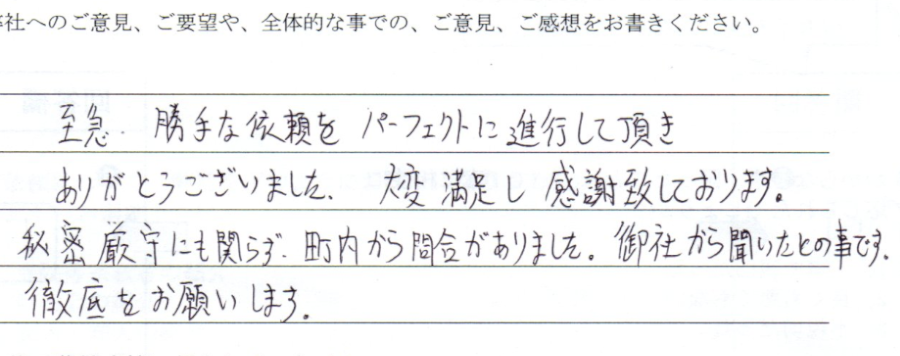 弊社へのご意見、ご要望や、全体的な事での、ご意見、ご感想をお書きください。
至急、勝手な依頼を パーフェクトに進行して頂き
ありがとうございました。 大変満足し感謝致しております。
秘密厳守にも関らず、町内から問合がありました。御社から聞いたとの事です。
徹底をお願いします。